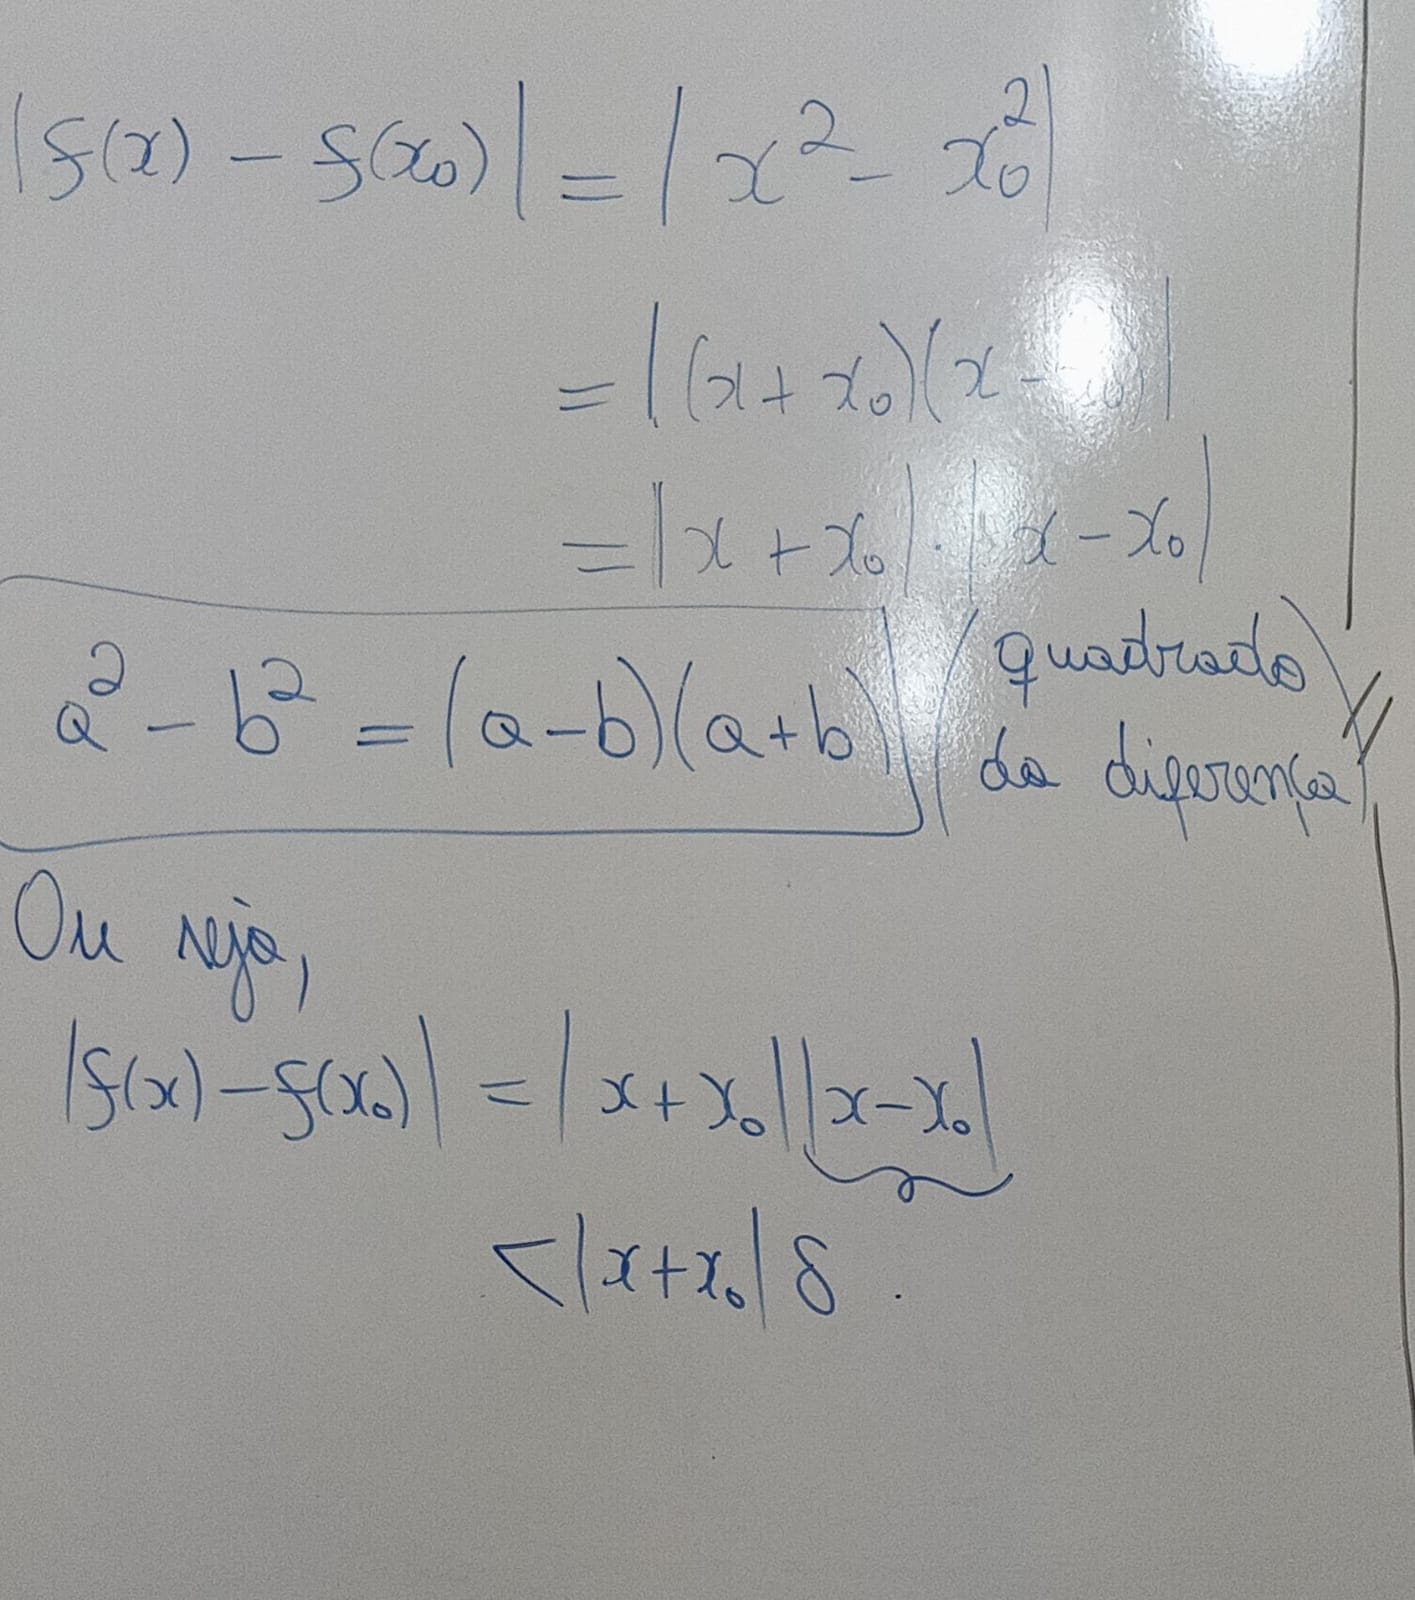 |f(x) - f(x₀)| = |x² - x₀²|
= |(x + x₀)(x - x₀)|
= |x + x₀| · |x - x₀|
a² - b² = (a-b)(a+b) (quadrado da diferença)
Ou seja,
|f(x) - f(x₀)| = |x + x₀||x - x₀|
< |x + x₀| δ .